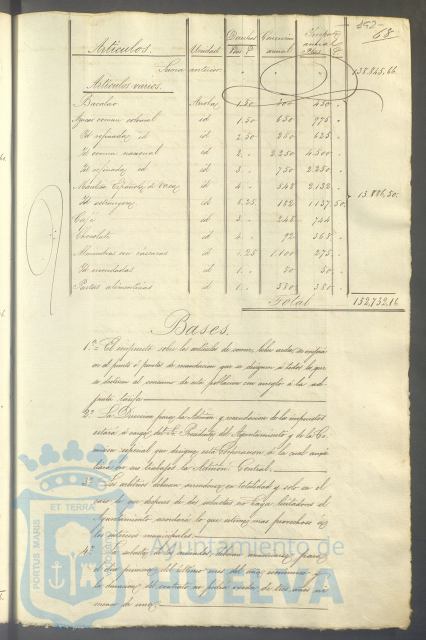 152
68
Artículos. Unidad Derechos Ptas. Cs. Consumo anual Importe anual Ptas. Cs.
Suma anterior 138.845,66
Artículos varios.
Bacalao Arroba 1.50 300 450
Azúcar común colonial id 1.50 650 975
Id refinada id id 2.50 250 625
Id común nacional id 2. 2.250 4.500
Id refinada id id 3. 750 2.250
Manteca Española de Vaca id 4. 548 2.132
Id extrangera id 6.25 182 1137.50 13.886,50
Café id 3. 248 744
Chocolate id 4. 92 368
Almendras con cáscaras id .25 1.100 275
Id mondadas id 1. 50 50
Pastas alimenticias id 1. 380 380
Total 152,732,16
Bases.
1ª El impuesto sobre los artículos de comer, beber y arder, se exigirá
en el punto ó puntos de que se designen á todos los que
se destinen al consumo de esta población con arreglo á la ad-
junta tarifa.
2ª La Dirección para la Admón y recaudación de los impuestos
estará á cargo del Sr. Presidente del Ayuntamiento y de la Co-
misión especial que designe esta Corporación á la cual
en sus trabajos la Admón Central.
3ª Los arbitrios deberán arrendarse en totalidad y solo en el
caso de que después de dos subastas no haya licitadores el
Ayuntamiento acordará lo que estime mas provechoso á
los intereses municipales.
4ª La subasta de deberá anunciarse
el día primero del último mes del año económico y
la duración del contrato no podrá exceder de tres años ni
menos de uno.
PORTUS MARIS ET TERRAE
Ayuntamiento de
HUELVA